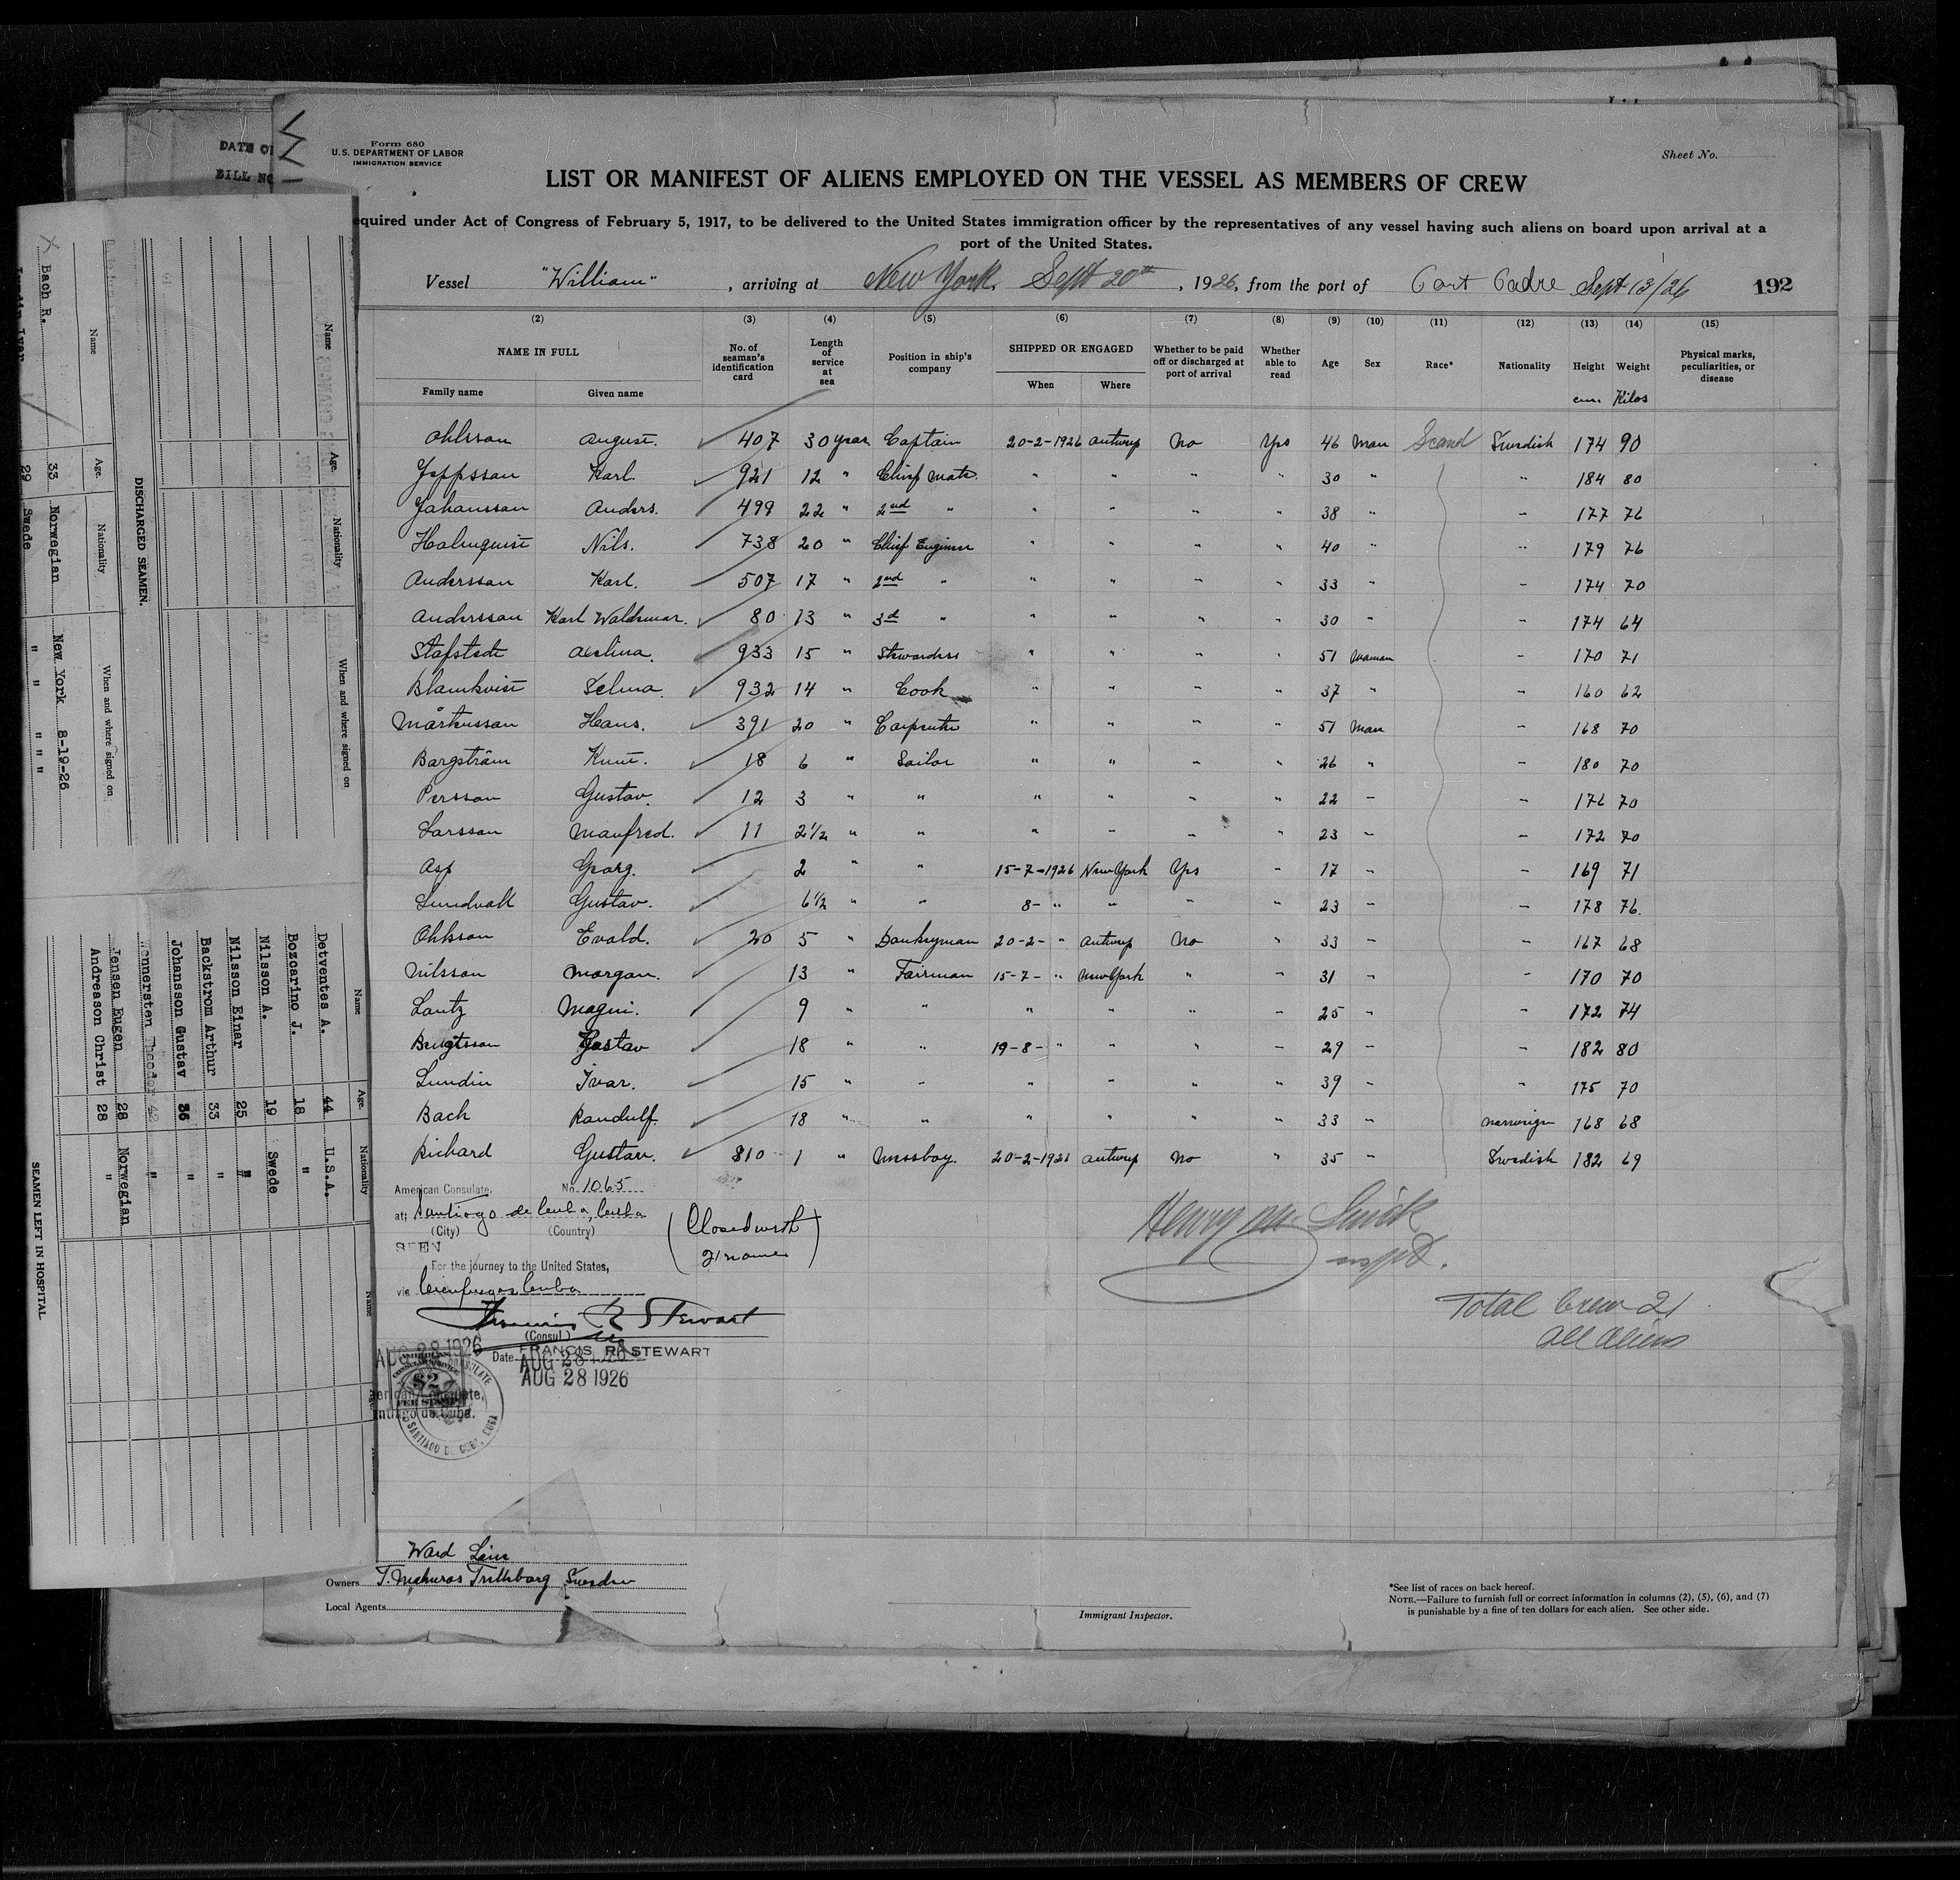 Form 680
U.S. DEPARTMENT OF LABOR
IMMIGRATION SERVICE
Sheet No.
DATE OF
BILL NO
LIST OR MANIFEST OF ALIENS EMPLOYED ON THE VESSEL AS MEMBERS OF CREW
equired under Act of Congress of February 5, 1917, to be delivered to the United States immigration officer by the representatives of any vessel having such aliens on board upon arrival at a
port of the United States.
Vessel "William", arriving at New York, Sept 20th, 1926, from the port of Port Padre Sept 13/26 192
(2) (3) (4) (5) (6) (7) (8) (9) (10) (11) (12) (13) (14) (15)
NAME IN FULL No. of seaman's identification card Length of service at sea Position in ship's company SHIPPED OR ENGAGED Whether to be paid off or discharged at port of arrival Whether able to read Age Sex Race* Nationality Height Weight Physical marks, peculiarities, or disease
Family name Given name When Where cm. Kilos
Ohlsson August. 407 30 years Captain 20-2-1926 Antwerp No Yes 46 Man Scand Swedish 174 90
Jeppsson Karl. 921 12 " Chief Mate. " " " " 30 " " 184 80
Johansson Anders. 499 22 " 2nd " " " " " 38 " " 177 76
Holmquist Nils. 738 20 " Chief Engineer " " " " 40 " " 179 76
Andersson Karl. 507 17 " 2nd " " " " " 33 " " 174 70
Andersson Karl Waldemar. 80 13 " 3d " " " " " 30 " " 174 64
Stafstedt Axelina. 933 15 " Stewardess " " " " 51 Woman " 170 71
Blomkvist Selma. 932 14 " Cook " " " " 37 " " 160 62
Mårtensson Hans. 391 20 " Carpenter " " " " 51 Man " 168 70
Bergström Knut. 18 6 " Sailor " " " " 26 " " 180 70
Persson Gustav. 12 3 " " " " " " 22 " " 176 70
Larsson Manfred. 11 2 1/2 " " " " " " 23 " " 172 70
Asp Georg. 2 " " 15-7-1926 New York Yes " 17 " " 169 71
Lundvall Gustav. 6 1/2 " " 8- " " " " 23 " " 178 76.
Ohlsson Evald. 20 5 " Donkeyman 20-2- " Antwerp No " 33 " " 167 68
Nilsson Morgan. 13 " Fairman 15-7- " New York " " 31 " " 170 70
Lantz Magni. 9 " " " " " " 25 " " 172 74
Bengtsson Gustav 18 " " 19-8- " " " " 29 " " 182 80
Lundin Ivar. 15 " " " " " " 39 " " 175 70
Bach Randulf. 18 " " " " " " 33 " Norwegian 168 68
Richard Gustav. 810 1 " Messboy. 20-2-1926 Antwerp No " 35 " Swedish 182 69
American Consulate. No. 1065
at Santiago de Cuba, Cuba
(City) (Country)
SEEN
For the journey to the United States,
via Cienfuegos Cuba
(Closed with
21 names)
Francis R Stewart
(Consul)
FRANCIS R. STEWART
AUG 28 1926
Date AUG 28 1926
AUG 28 1926
$2
American Consulate,
Santiago de Cuba.
SANTIAGO DE CUBA, CUBA
Inspt.
Total Crew 21
All Aliens
Ward Line
Owners
Local Agents
Immigrant Inspector.
*See list of races on back hereof.
NOTE.—Failure to furnish full or correct information in columns (2), (5), (6), and (7)
is punishable by a fine of ten dollars for each alien. See other side.
Name Age. Nationality When and where signed on
DISCHARGED SEAMEN.
Name Age. Nationality When and where signed on
Bach R. 33 Norwegian New York 8-19-26
Lundin Iver 29 Swede " " " "
Name Age. Nationality
Detventes A. 44 U.S.A.
Bozcarino J. 18 "
Nilsson A. 19 Swede
Nilsson Einar 25 "
Backstrom Arthur 33 "
Johansson Gustav 36 "
Wennersten Theodor 42 "
Jensen Eugen 28 Norwegian
Andreason Christ 28 "
SEAMEN LEFT IN HOSPITAL
Name